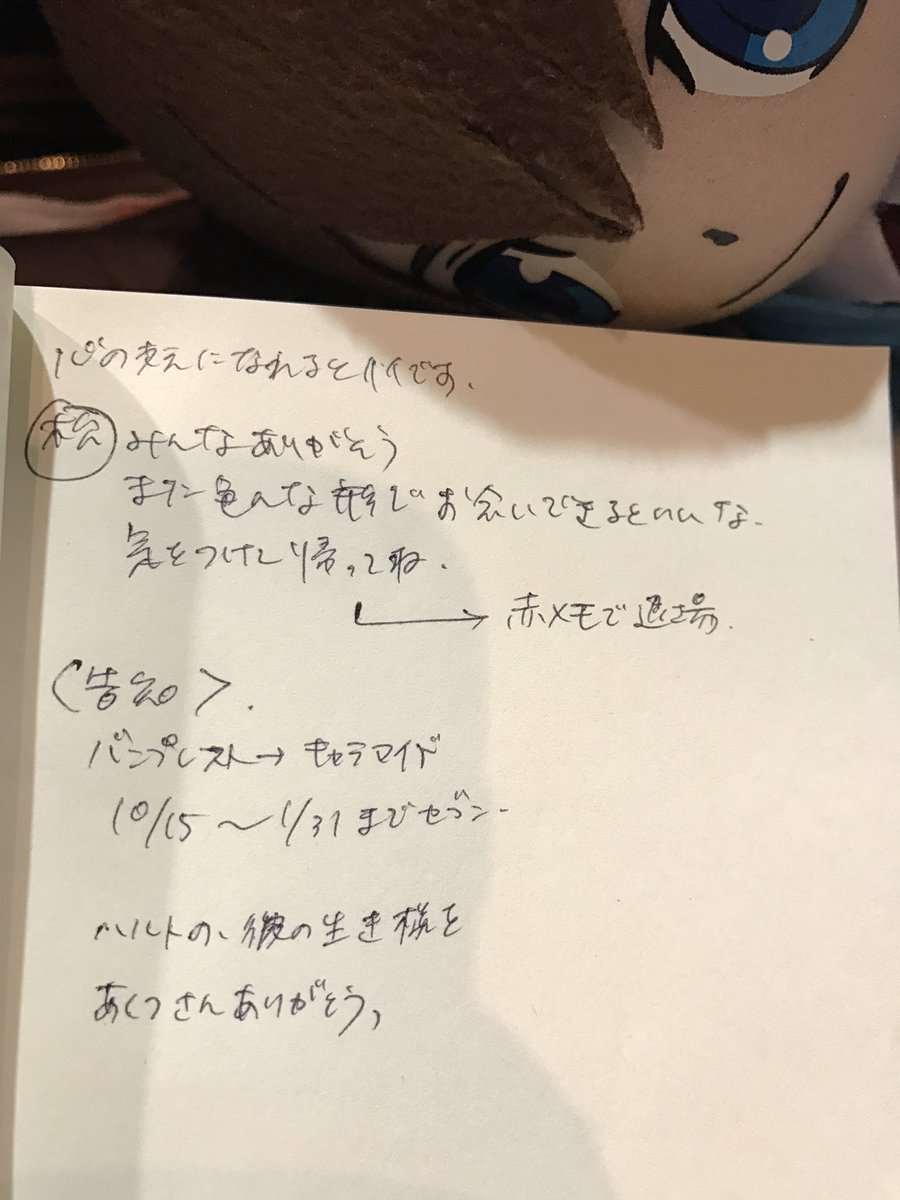 心の支えになれるとイイです.
みんなありがとう
また色んな形でお会いできるといいな.
気をつけて帰ってね.
→ 赤メモで退場.
〈告知〉.
バンプレスト→キャラマイド
10/15〜1/31までセブン-
ハルトの、彼の生き様を
あくつさんありがとう,